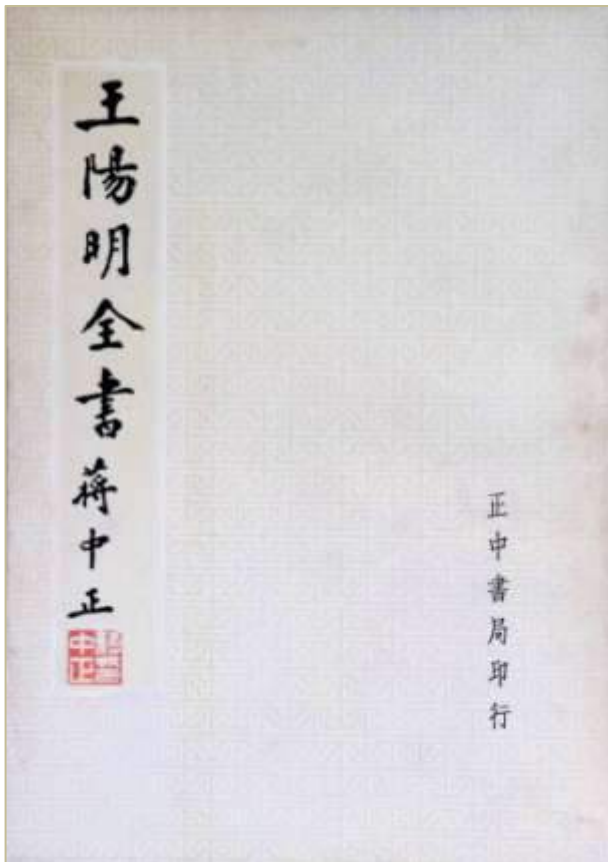 王陽明全書 蔣中正
正中書局印行